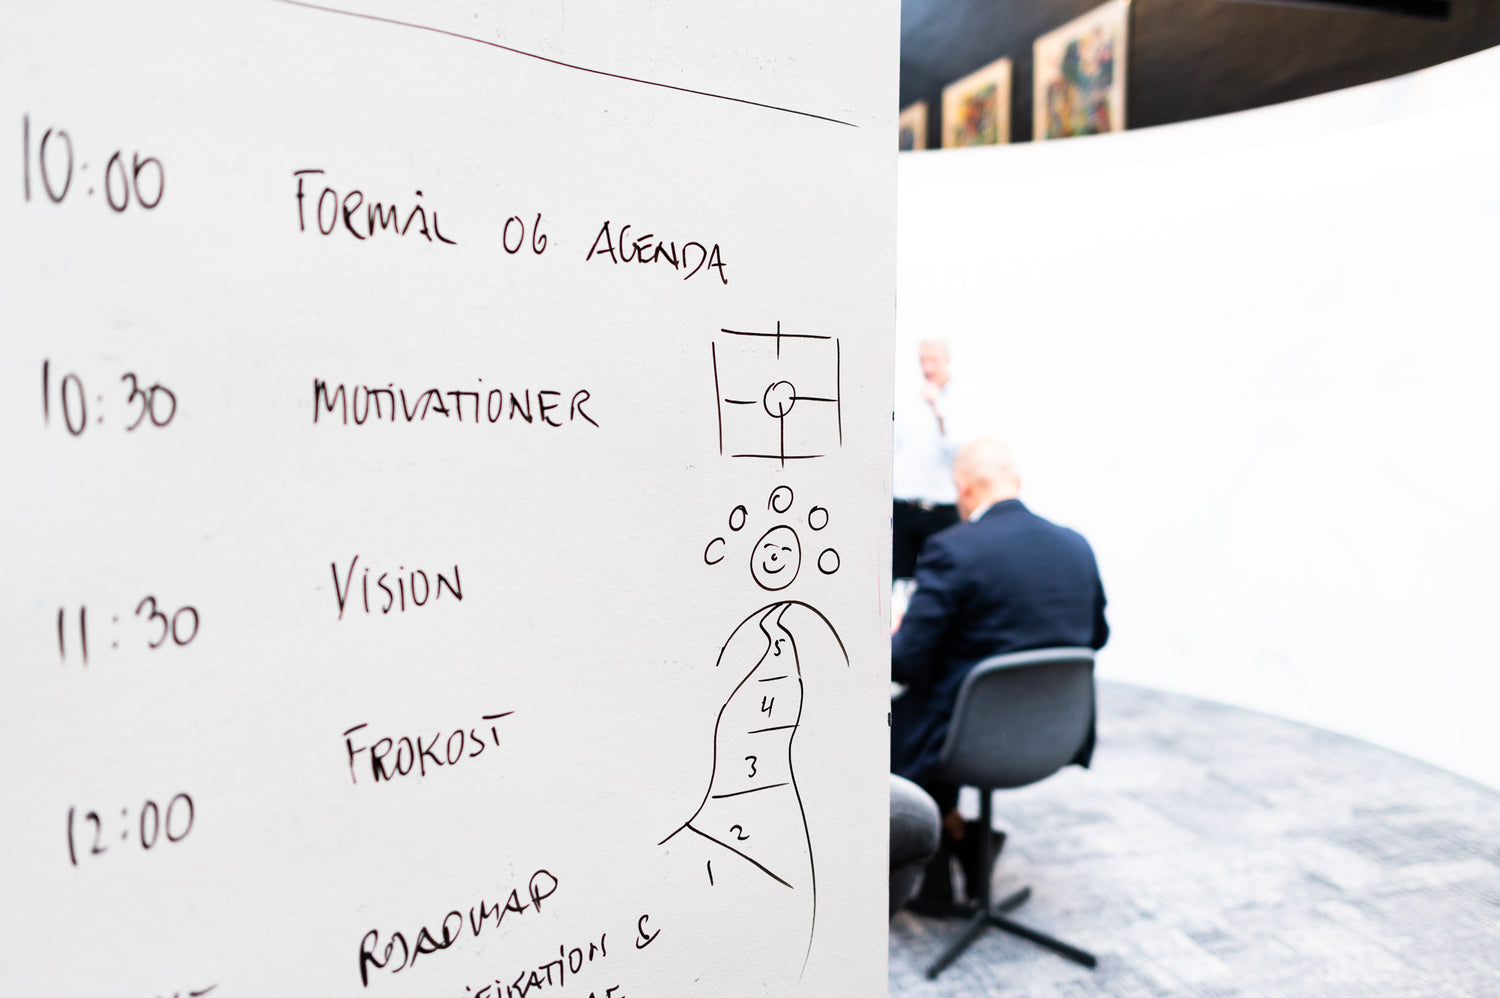 10:00 FORMÅL OG AGENDA
10:30 MOTIVATIONER
11:30 VISION
12:00 FROKOST
ROADMAP
&
5
4
3
2
1